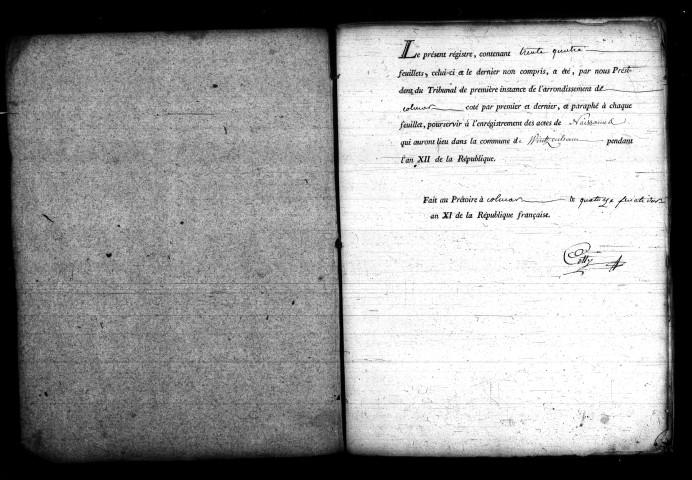 Le présent régistre, contenant trente quatre
feuillets, celui-ci et le dernier non compris, a été, par nous Prési-
dent du Tribunal de première instance de l'arrondissement de
colmar coté par premier et dernier, et paraphé à chaque
feuillet, pour servir à l'enrégistrement des actes de Naissance
qui auront lieu dans la commune de Wintzenheim pendant
l'an XII de la République.
Fait au Prétoire à colmar le quatorze fructidor
an XI de la République française.